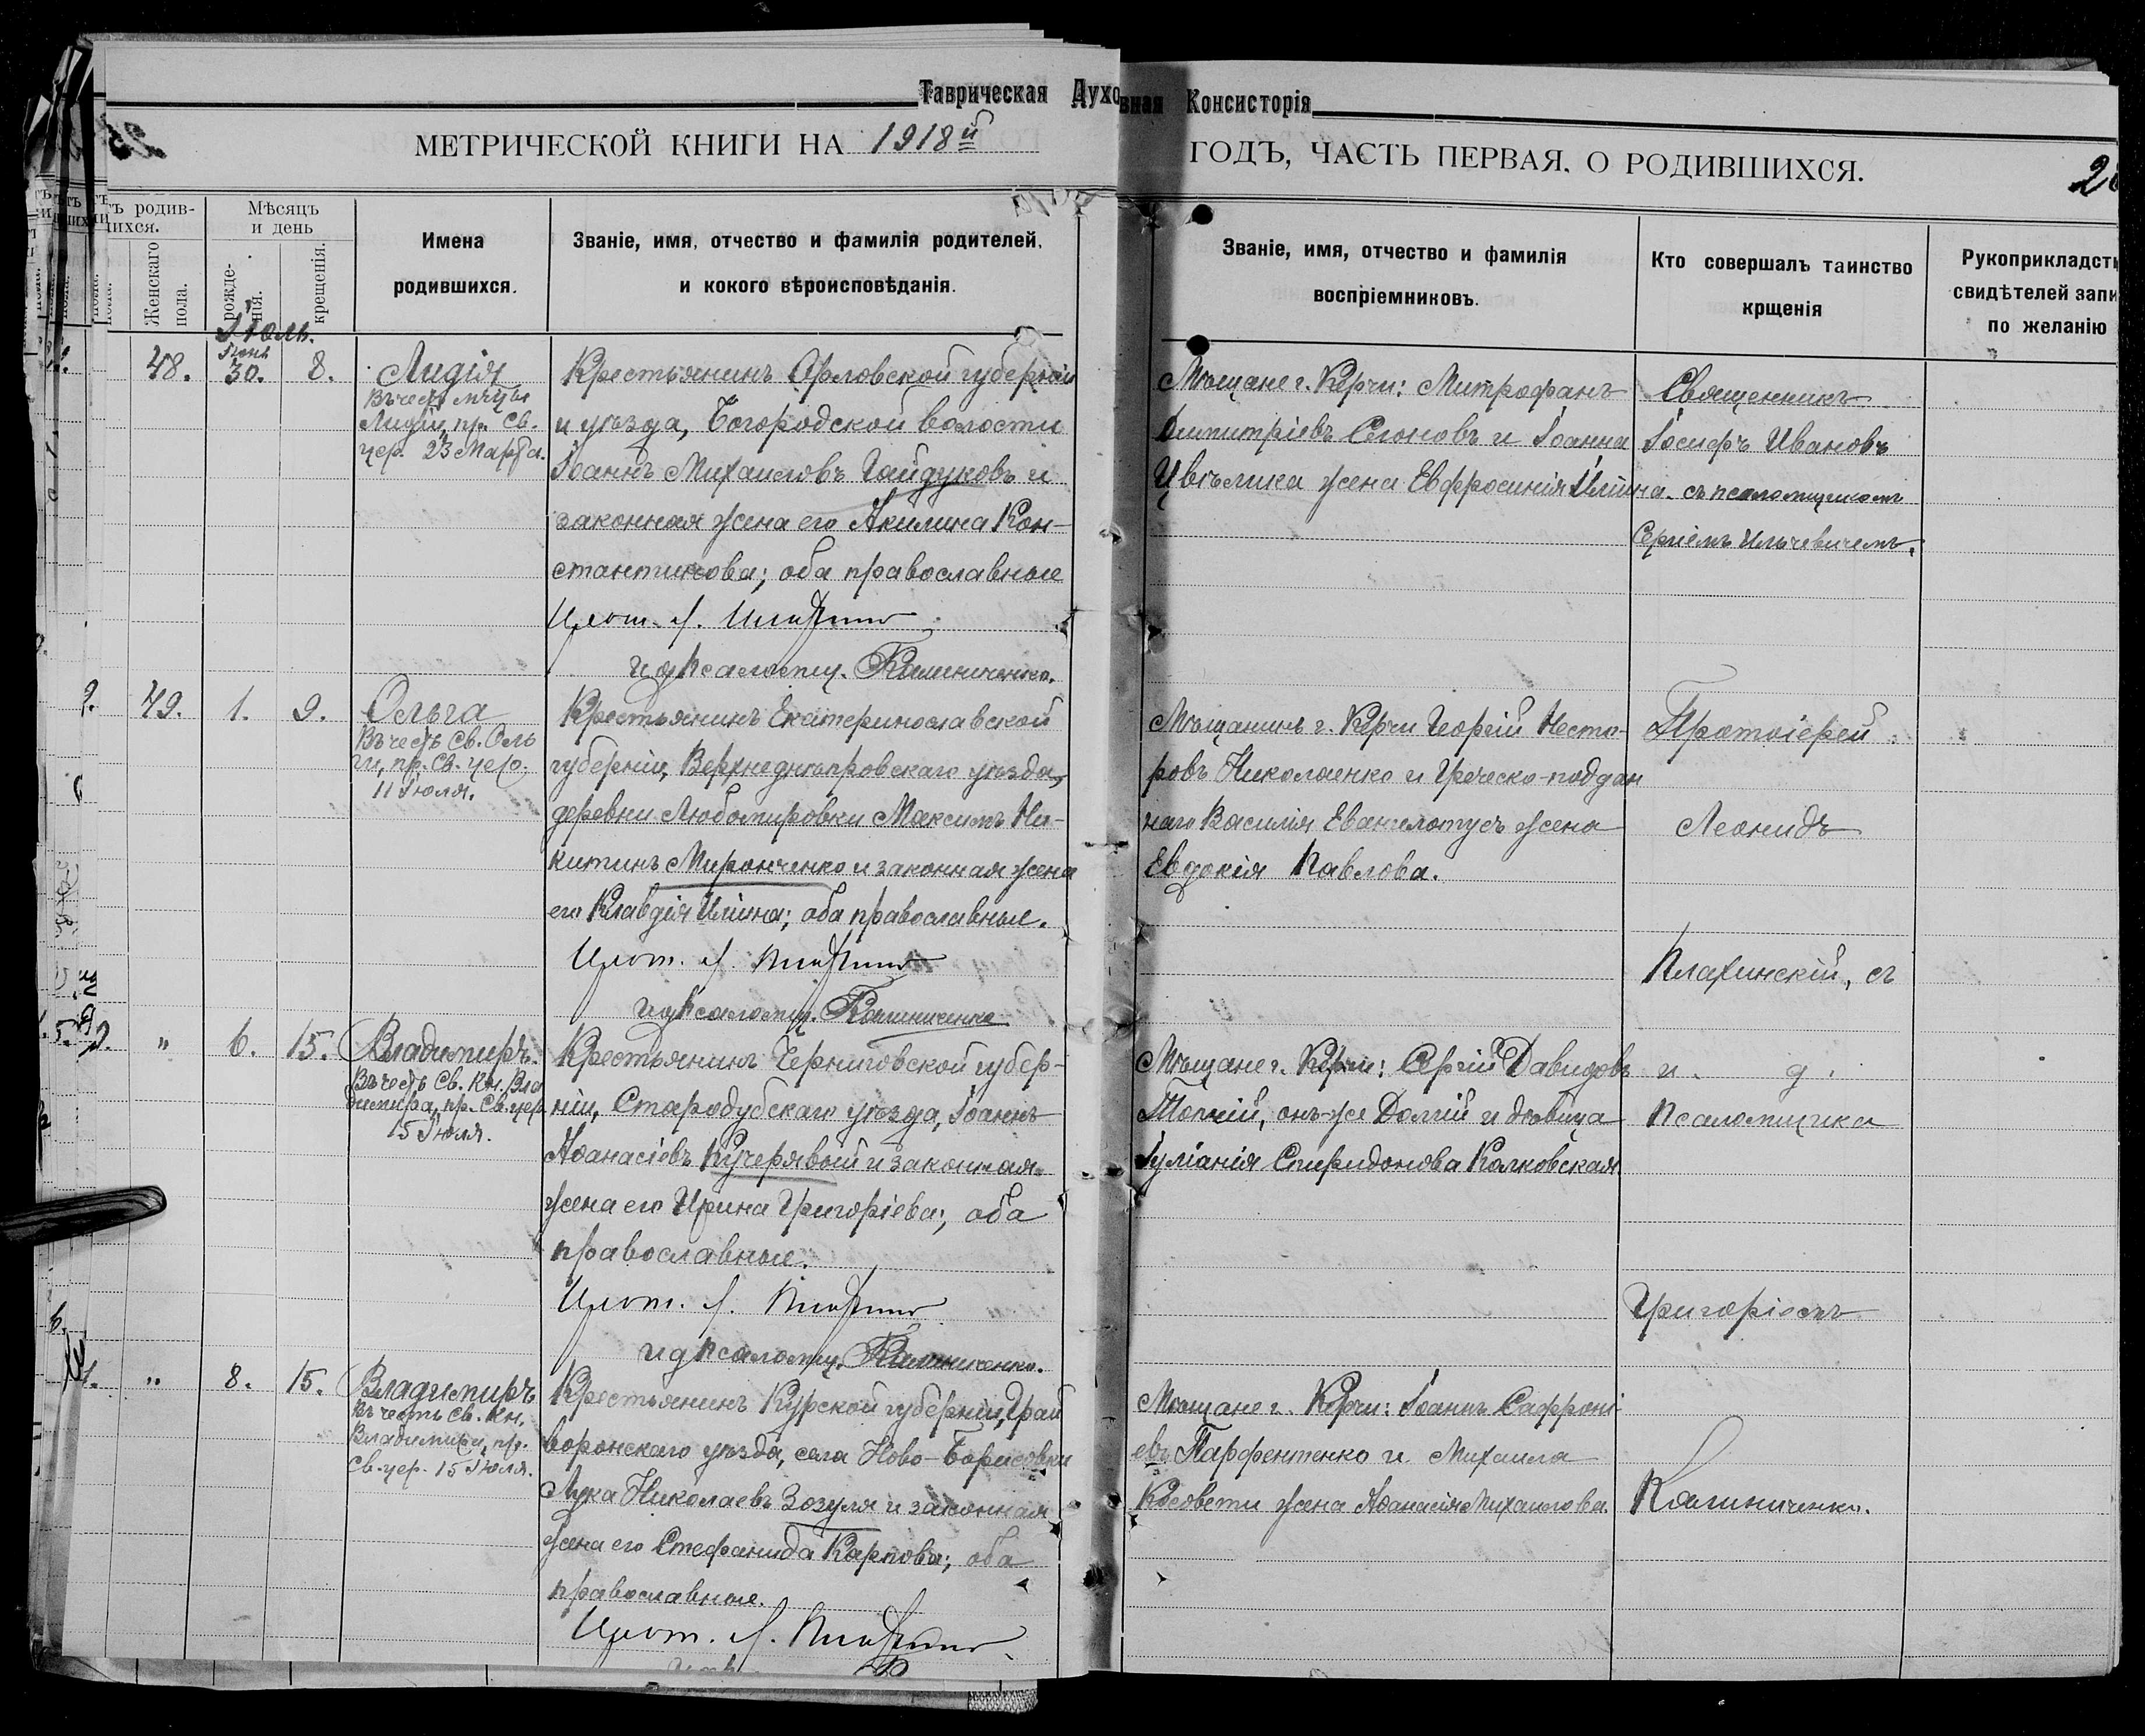 Таврическая Духовная Консисторія
МЕТРИЧЕСКОЙ КНИГИ НА 1918й ГОДЪ, ЧАСТЬ ПЕРВАЯ, О РОДИВШИХСЯ.
родив-
шихся.
Женскаго
пола.
Мѣсяцъ
и день
рожде-
нія.
крещенія.
Имена
родившихся.
Званіе, имя, отчество и фамилія родителей,
и кокого вѣроисповѣданія.
Званіе, имя, отчество и фамилія
воспріемниковъ.
Кто совершалъ таинство
крщенія
Рукоприкладст
свидѣтелей запи
по желанію
Іюль.
48.
Іюнь
30.
8.
Лидія
Въ честь мчцы
Лидіи, пр. Св.
цер. 23 Марта.
Крестьянинъ Орловской губерніи
и уѣзда, Богородской волости
Іоаннъ Михаиловъ Гайдуковъ и
законная жена его Акилина Кон-
стантинова; оба православные
Прот. Л.
и д псаломщ. Калиниченко.
Мѣщане г. Керчи: Митрофанъ
Димитріевъ и Іоанна
жена Евфросинія Иліина.
Священникъ
Іосифъ Ивановъ
съ псаломщикомъ
Сергіемъ Ильчевичемъ.
49.
1.
9.
Ольга
Въ честь Св. Оль
ги, пр. Св. церк.
11 Іюля.
Крестьянинъ Екатеринославской
губерніи, Верхнеднѣпровскаго уѣзда,
деревни Любомировки Максимъ Ни-
китинъ Миронченко и законная жена
его Клавдія Иліина; оба православные.
Прот. Л.
и д псаломщ. Калиниченко
Мѣщанинъ г. Керчи Георгій Несто-
ровъ Николаенко и Греческо-поддан
наго Василія жена
Евдокія Павлова.
Протоіерей
Леонидъ
Плахинскій, съ
и. д.
псаломщика
Григоріемъ
Калиниченко.
"
6.
15.
Владимиръ.
Въ честь Св. Кн. Вла
димира, пр. Св. цер
15 Іюля.
Крестьянинъ Черниговской губер-
ніи, Стародубскаго уѣзда, Іоаннъ
Аѳанасіевъ Кучерявый и законная
жена его Ирина Григоріева; оба
православные.
Прот. Л.
и д псаломщ. Калиниченко.
Мѣщане г. Керчи: Сергій Давидовъ
онъ-же Долгій и дѣвица
Іуліанія Спиридонова Калковская
"
8.
15.
Владимиръ
Въ честь Св. Кн.
Владимира, пр.
Св. цер. 15 Іюля.
Крестьянинъ Курской губерніи, Грай
воронскаго уѣзда, села Ново-Борисовки
Лука Николаевъ Зозуля и законная
жена его Стефанида Карпова; оба
православные.
Прот. Л.
Мѣщане г. Керчи: Іоаннъ Саффоні
евъ Парфентенко и Михаила
жена Аѳанасія Михаилова.